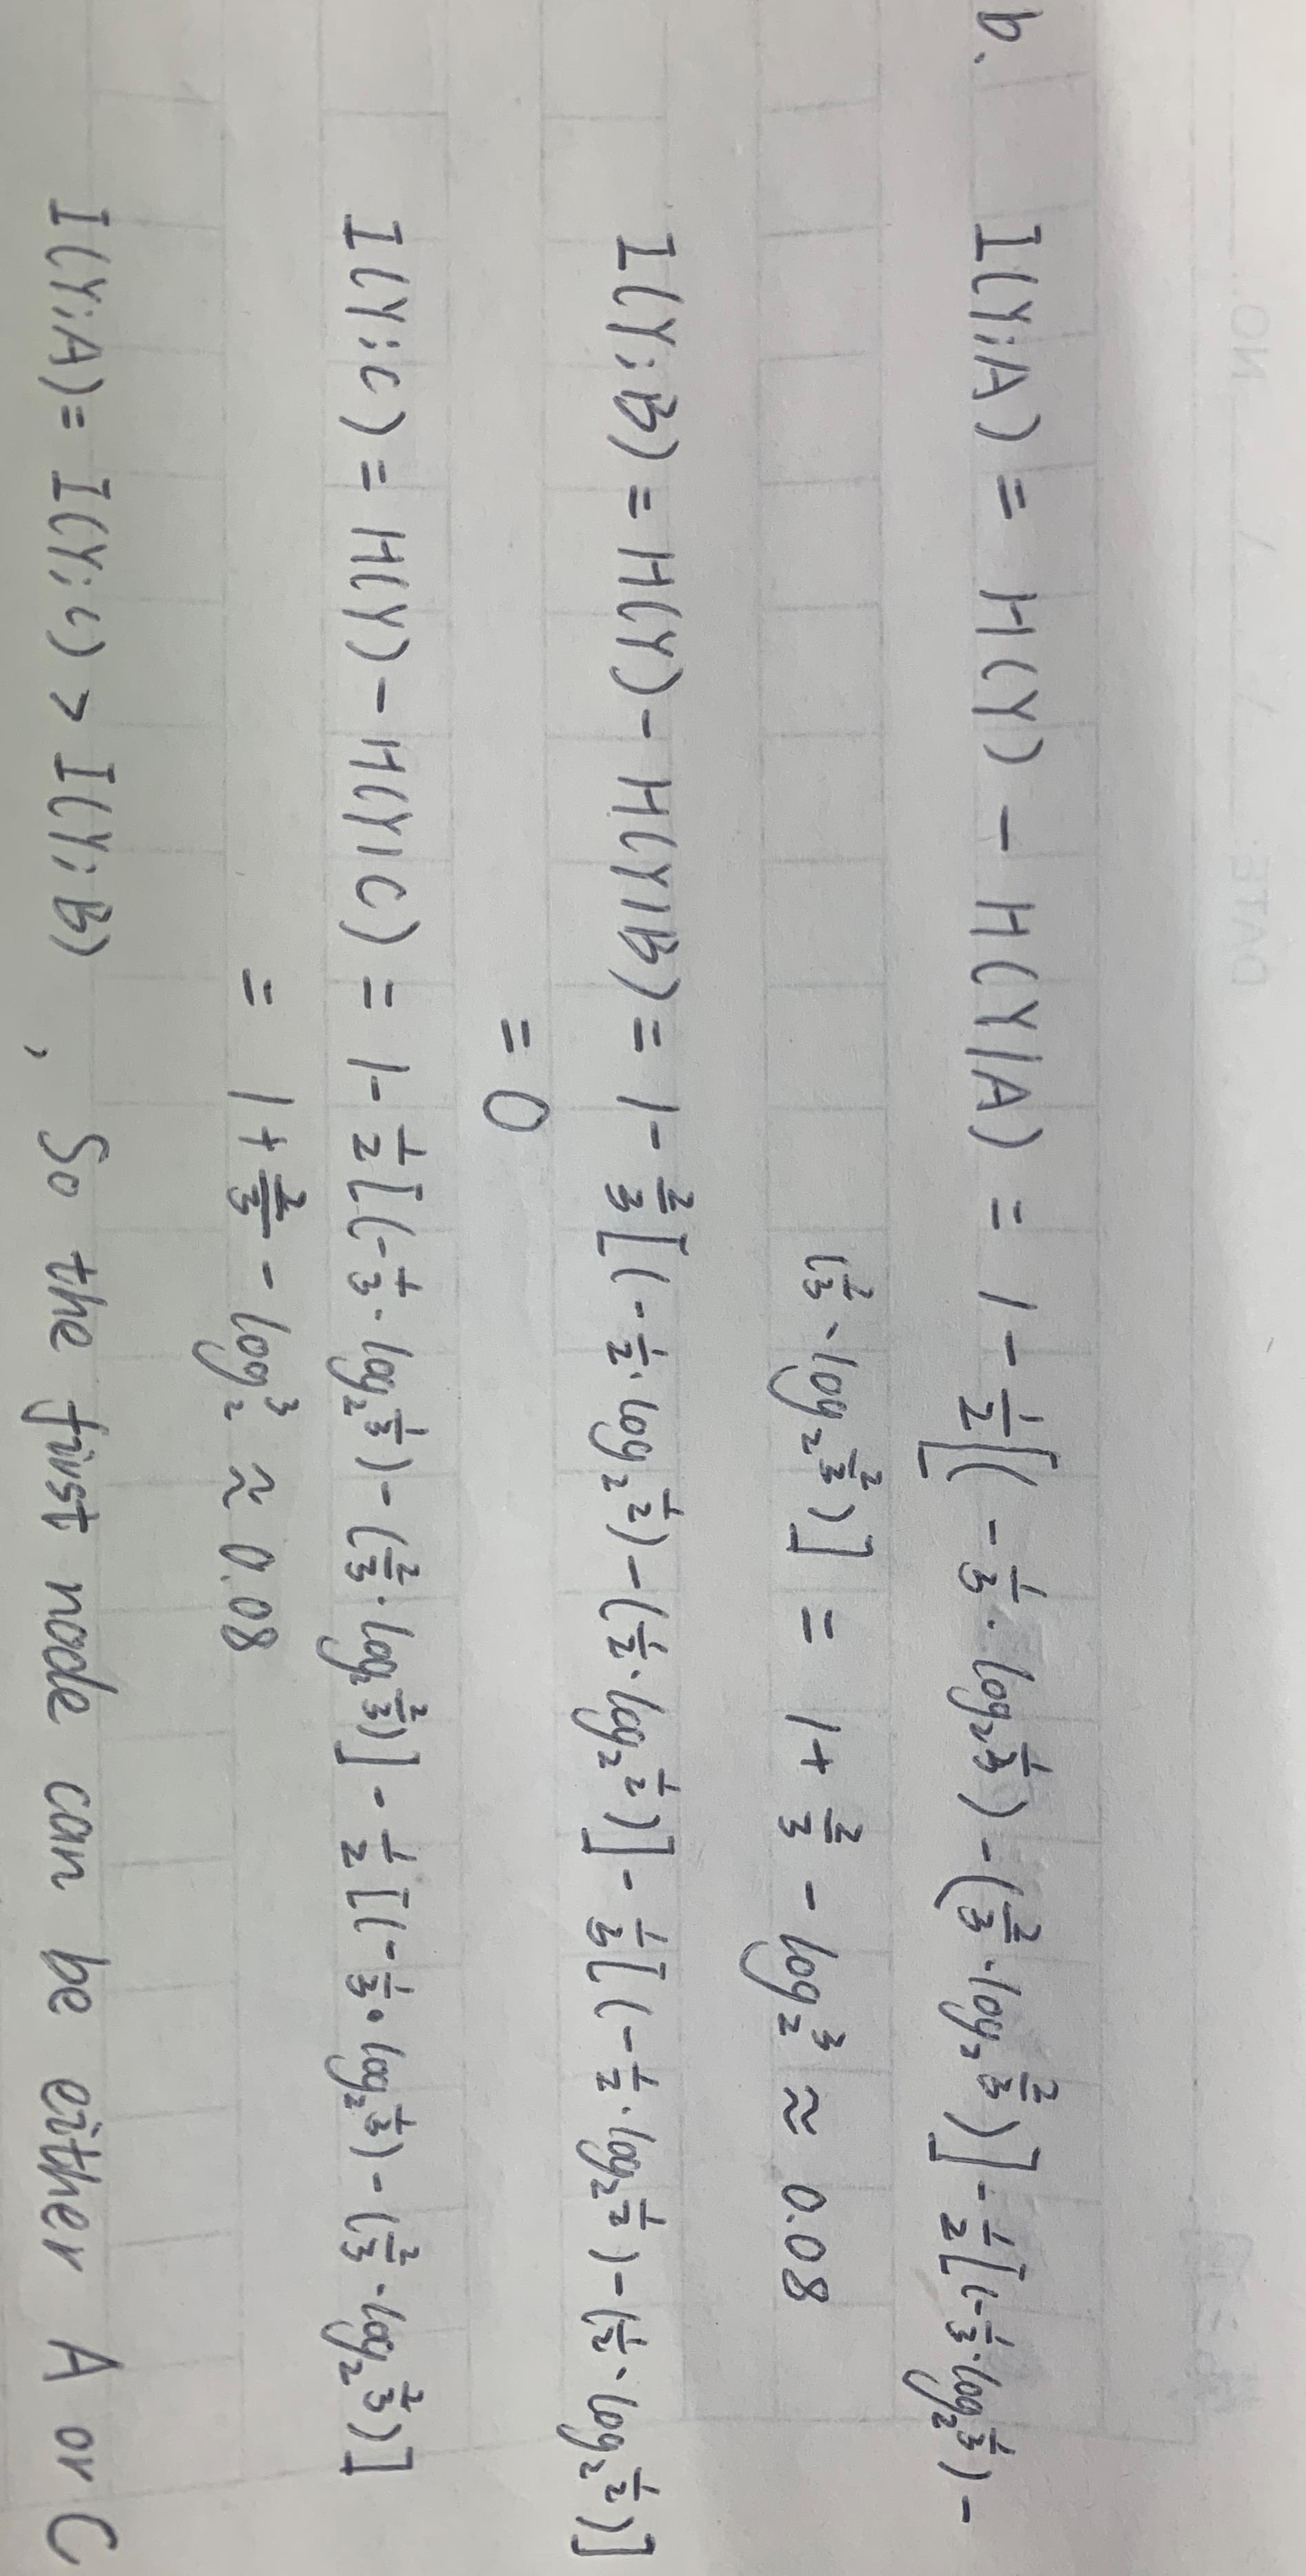 NO.
DATE: / /
b. I(Y;A) = H(Y) - H(Y|A) = 1 - 1/2[(-1/3·log₂1/3) - (2/3·log₂2/3)] - 1/2[(-1/3·log₂1/3) -
(2/3·log₂2/3)] = 1 + 2/3 - log₂3 ≈ 0.08
I(Y;B) = H(Y) - H(Y|B) = 1 - 2/3[(-1/2·log₂1/2) - (1/2·log₂1/2)] - 1/3[(-1/2·log₂1/2) - (1/2·log₂1/2)]
= 0
I(Y;C) = H(Y) - H(Y|C) = 1 - 1/2[(-1/3·log₂1/3) - (2/3·log₂2/3)] - 1/2[(-1/3·log₂1/3) - (2/3·log₂2/3)]
= 1 + 2/3 - log₂3 ≈ 0.08
I(Y;A) = I(Y;C) > I(Y;B) , So the first node can be either A or C